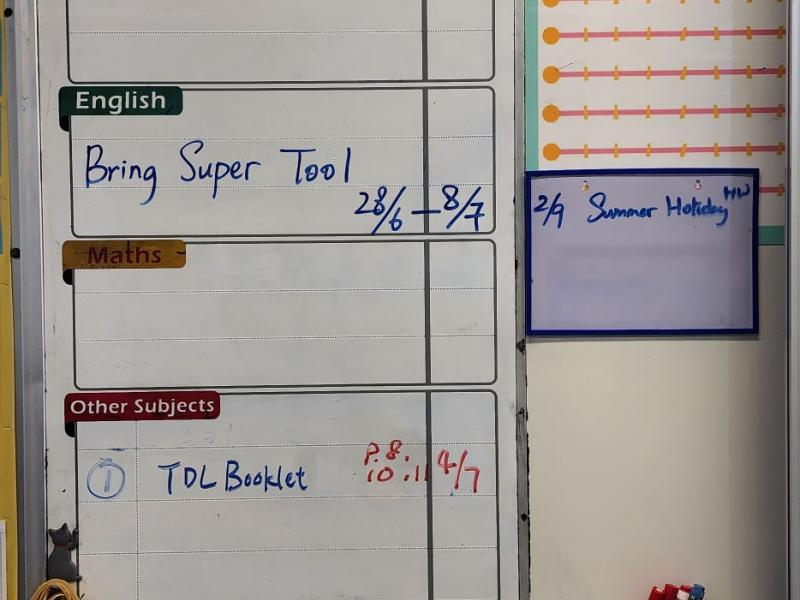 English
Bring Super Tool
28/6 — 8/7
Maths
Other Subjects
① TDL Booklet P.8. 10.11 4/7
2/9 Summer Holiday HW